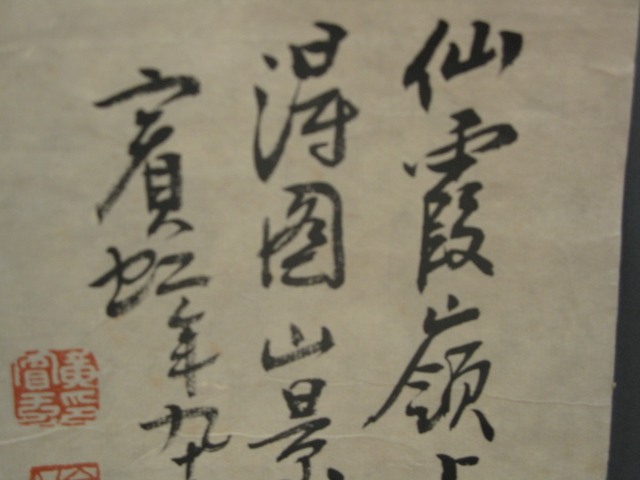 仙霞嶺上
得图山景
賓虹年九十